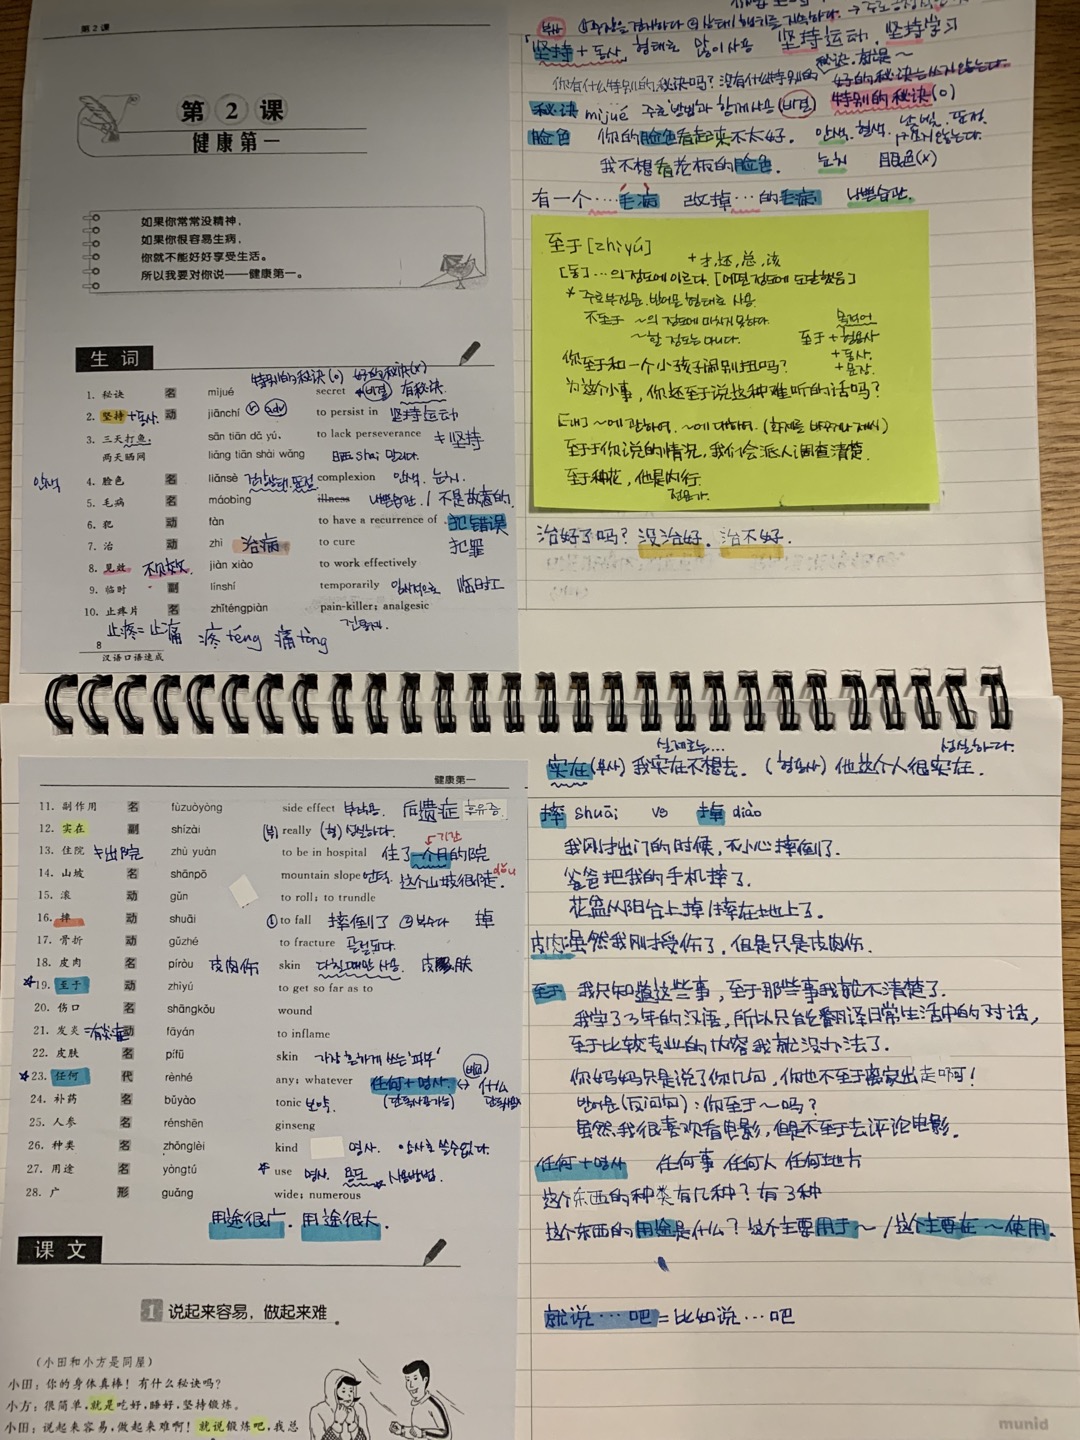 第2课
第2课
健康第一
如果你常常没精神，
如果你很容易生病，
你就不能好好享受生活。
所以我要对你说——健康第一。
生词
特别的秘诀(o) 好的秘诀(x)
1. 秘诀 名 mìjué secret 비결 有秘诀
2. 坚持 +동사 动 jiānchí v adv to persist in 坚持运动
3. 三天打鱼， sān tiān dǎ yú, to lack perseverance 坚持
两天晒网 liǎng tiān shài wǎng 晒 shài 말리다.
4. 脸色 名 liǎnsè complexion 안색. 눈치.
안색
5. 毛病 名 máobìng illness 나쁜습관. / 不是故意的
6. 犯 动 fàn to have a recurrence of 犯错误
7. 治 动 zhì 治病 to cure 犯罪
8. 见效 不见效 jiàn xiào to work effectively
9. 临时 副 línshí temporarily 임시적으로 临时工
10. 止疼片 名 zhǐténgpiàn pain-killer; analgesic
진통제.
止疼=止痛 疼 téng 痛 tòng
8
汉语口语速成
坚持+동사 형태로 많이사용 坚持运动. 坚持学习
你有什么特别的秘诀吗? 没有什么特别的秘诀. 就是~
好的秘诀는쓰지않는다.
秘诀 mìjué 주로 방법과 함께사용 (비결) 特别的秘诀(o)
脸色 你的脸色看起来不太好. 안색. 혈색.
我不想看老板的脸色. 눈치 眼色(x)
有一个····毛病 改掉···的毛病 나쁜습관.
至于 [zhìyú]
+才, 还, 总, 该
[동] ···의 정도에 이르다. [어떤 정도에 도달했음]
* 주로부정문. 반어문 형태로 사용.
不至于 ~의 정도에 미치지 못하다.
~할 정도는 아니다.
목적어
至于 + 형용사
+ 동사.
+ 문장.
你至于和一个小孩子闹别扭吗?
为这个小事, 你还至于说这种难听的话吗?
[개] ~에 관하여. ~에 대하여.
至于你说的情况, 我们会派人调查清楚.
至于种花, 他是内行.
전문가.
治好了吗? 没治好. 治不好.
健康第一
11. 副作用 名 fùzuòyòng side effect 부작용 后遗症 후유증.
12. 实在 副 shízài (부) really (형) 성실하다.
13. 住院 出院 zhù yuàn to be in hospital 住了一个月的院
기간
14. 山坡 名 shānpō mountain slope 언덕. 这个山坡很陡. dǒu
15. 滚 动 gǔn to roll; to trundle
16. 摔 动 shuāi ① to fall 摔倒了 ② 부수다 掉
17. 骨折 动 gǔzhé to fracture 골절되다.
18. 皮肉 名 píròu 皮肉伤 skin 다칠때만 사용. 皮肤
19. 至于 动 zhìyú to get so far as to
20. 伤口 名 shāngkǒu wound
21. 发炎 =有炎症 动 fāyán to inflame
22. 皮肤 名 pífū skin 가장 흔하게 쓰는 '피부'
23. 任何 代 rènhé any; whatever 任何+명사. ↔ 什么
24. 补药 名 bǔyào tonic 보약.
25. 人参 名 rénshēn ginseng
26. 种类 名 zhǒnglèi kind 명사. 양사로 쓸수없다.
27. 用途 名 yòngtú use 명사. 용도. 사용방법.
28. 广 形 guǎng wide; numerous
用途很广. 用途很大.
课文
1 说起来容易，做起来难
（小田和小方是同屋）
小田：你的身体真棒！有什么秘诀吗？
小方：很简单，就是吃好，睡好，坚持锻炼。
小田：说起来容易，做起来难啊！就说锻炼吧，我总
실제로는...
성실하다.
实在 (부사) 我实在不想去. (형용사) 他这个人很实在.
摔 shuāi vs 掉 diào
我刚才出门的时候, 不小心摔倒了.
爸爸把我的手机摔了.
花盆从阳台上掉/摔在地上了.
皮肉: 虽然我刚才受伤了, 但是只是皮肉伤.
至于 我只知道这些事, 至于那些事我就不清楚了.
我学了3年的汉语, 所以只能翻译日常生活中的对话,
至于比较专业的内容我就没办法了.
你妈妈只是说了你几句, 你也不至于离家出走啊!
반어문 (反问句): 你至于~吗?
虽然我很喜欢看电影, 但是不至于去评论电影.
任何+명사 任何事 任何人 任何地方
这个东西的种类有几种? 有3种
这个东西的用途是什么? 这个主要用于~ /这个主要在~使用.
就说···吧 = 比如说···吧
munid